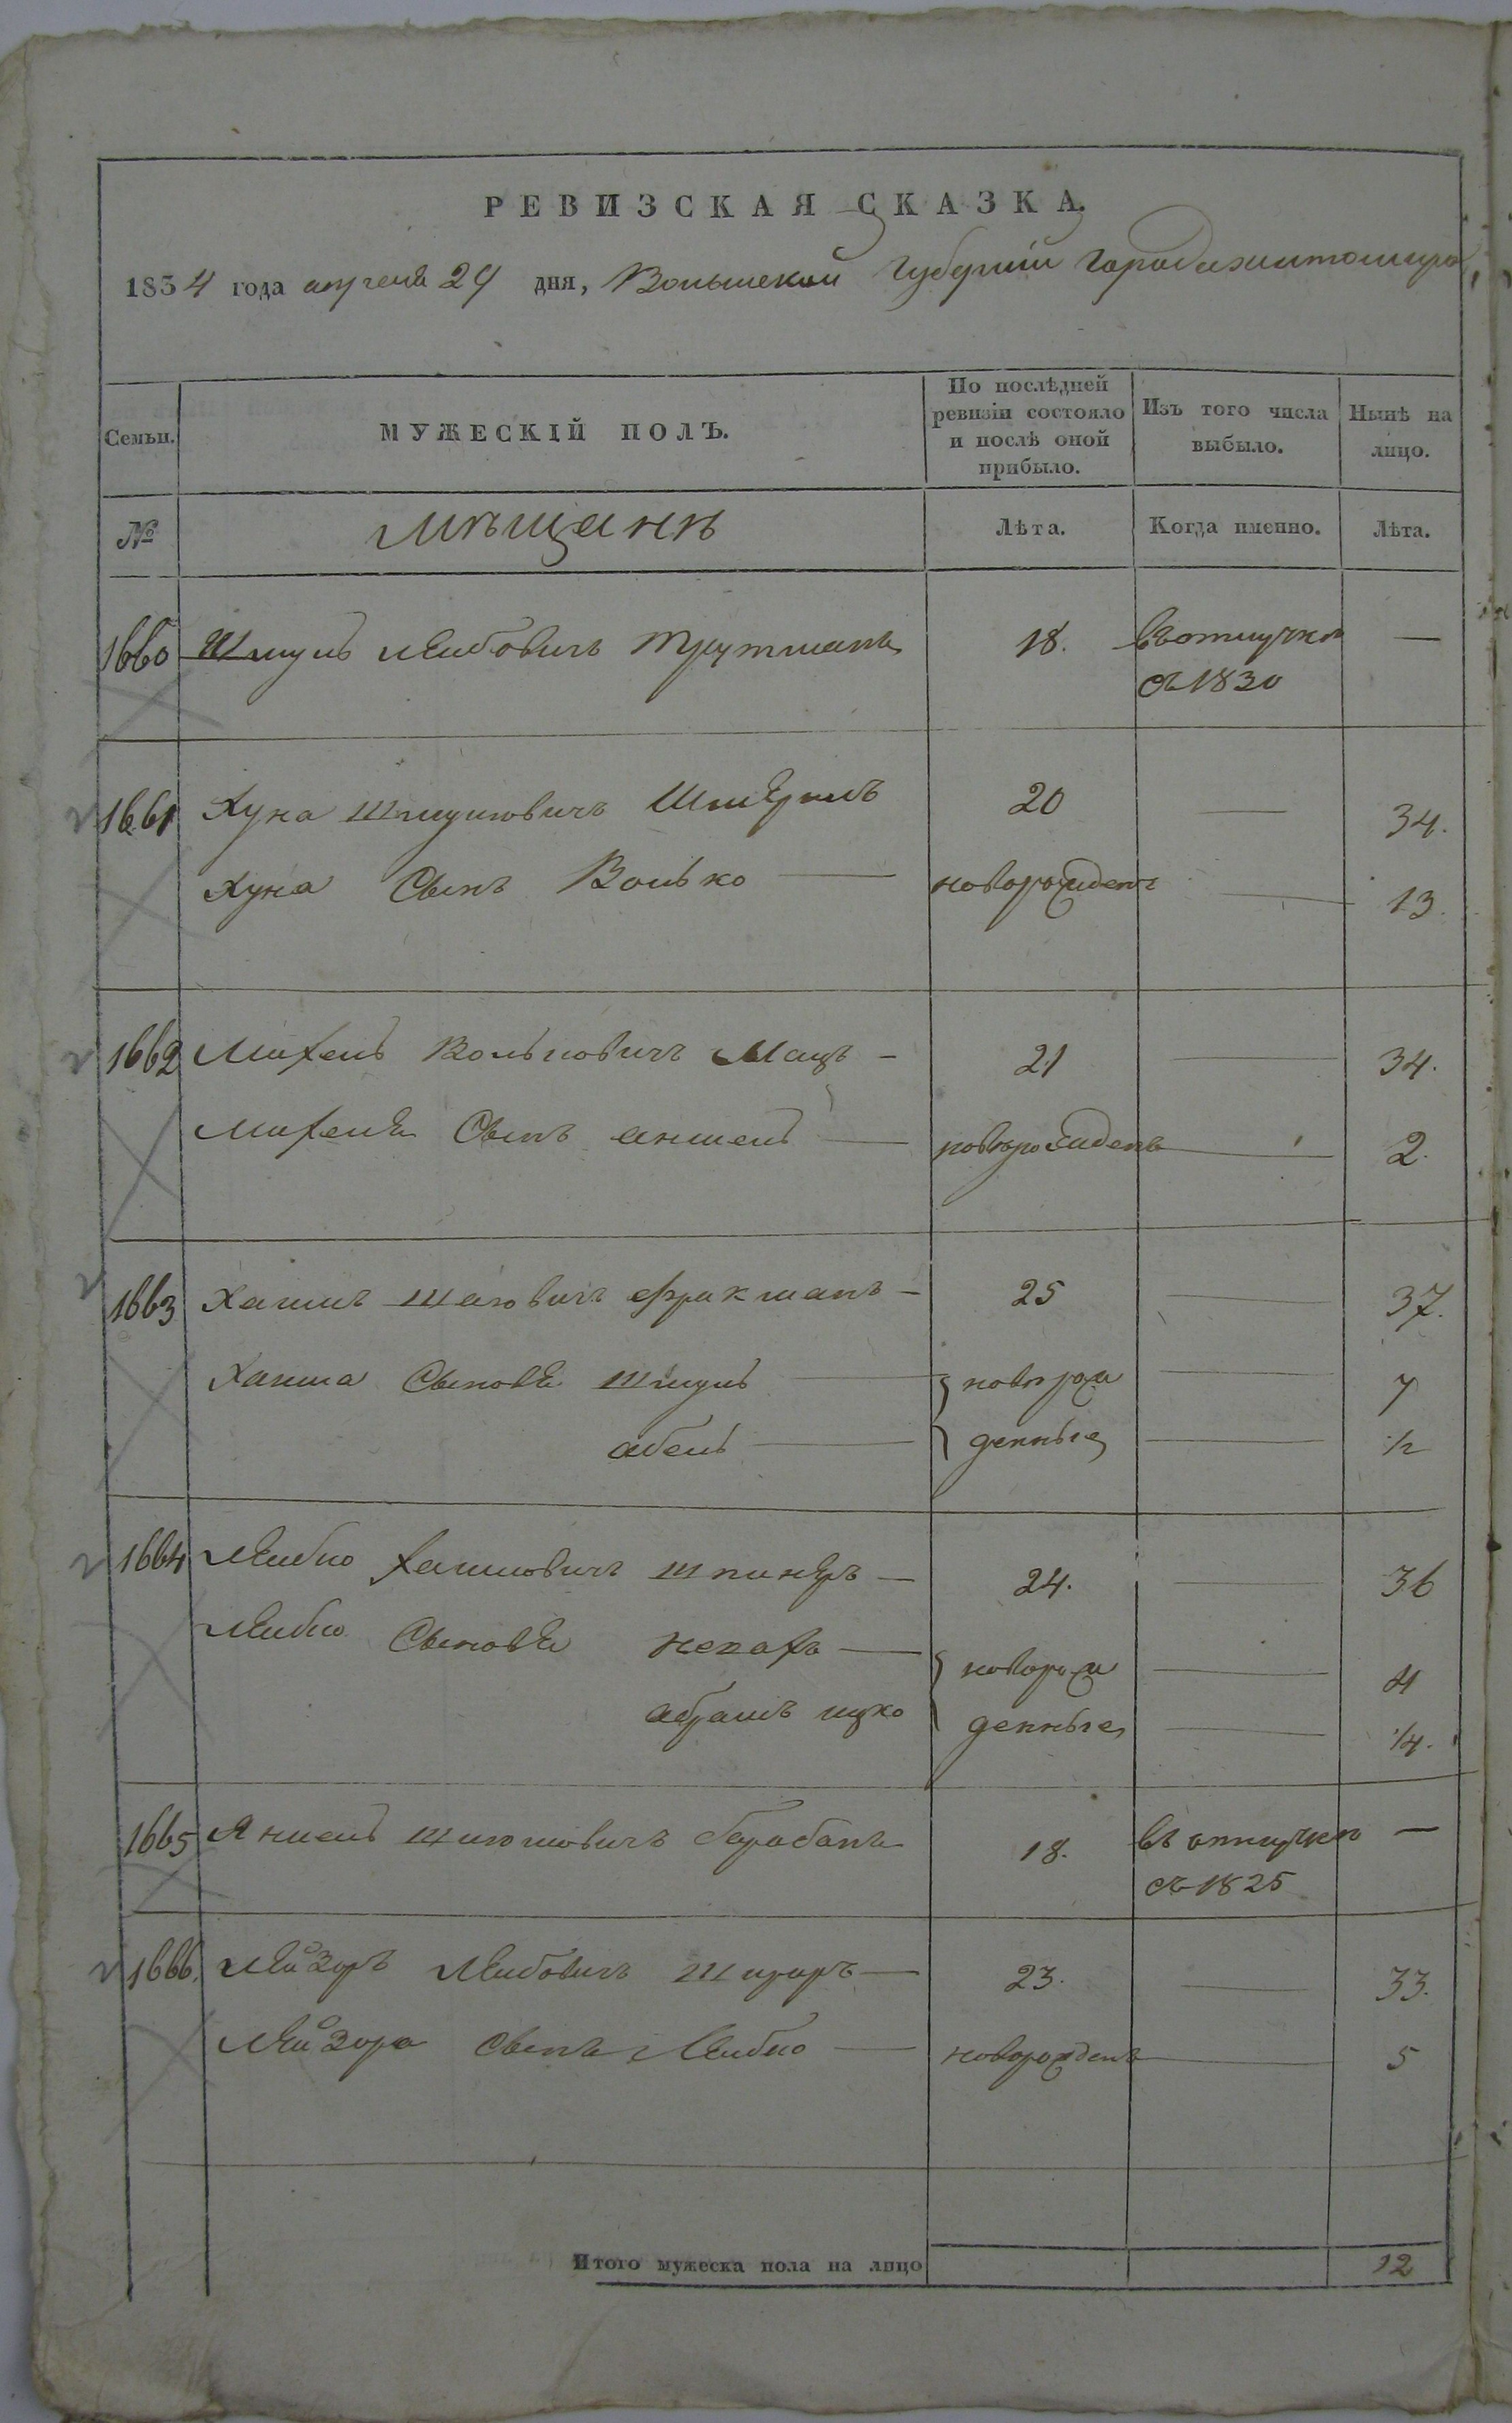 РЕВИЗСКАЯ СКАЗКА.
1834 года апреля 24 дня, Волынской губернии города житомира
Семьи. МУЖЕСКІЙ ПОЛЪ. По послѣдней ревизіи состояло и послѣ оной прибыло. Изъ того числа выбыло. Нынѣ на лицо.
№ мѣщанѣ Лѣта. Когда именно. Лѣта.
1660 Шмуль Лейбовичъ Трутманъ 18. въ отлучкѣ —
съ 1830
1661 Хуна Шмулiовичъ 20 — 34.
Хуна Сынъ Волько — новорожденъ — 13.
1662 Михель Вольковичъ Мацъ — 21 — 34.
Михеля Сынъ аншель — новорожденъ — 2.
1663 Хаимъ Шаювичъ Фрикманъ — 25 — 37.
Хаима Сыновя Шмуль — новорож — 7
абель — денные — 1/2
1664 Лейбю Хаимовичъ Шпинеръ — 24. — 36
Лейбю Сыновя нехахъ — новорож — 4
абрамъ ицко денные — 1/4.
1665 Янкель Шлiомовичъ барабанъ 18. въ отлучкѣ —
съ 1825
1666. Лейзоръ Лейбовичъ — 23. — 33.
Лейзора Сынъ Лейбю — новорожденъ — 5
Итого мужеска пола на лицо 12